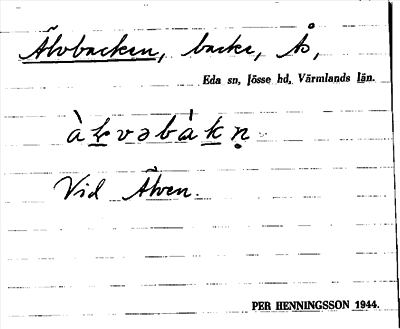 Älvbacken, backe, Ås,
Eda sn, Jösse hd, Värmlands län.
Vid Älven.
PER HENNINGSSON 1944.